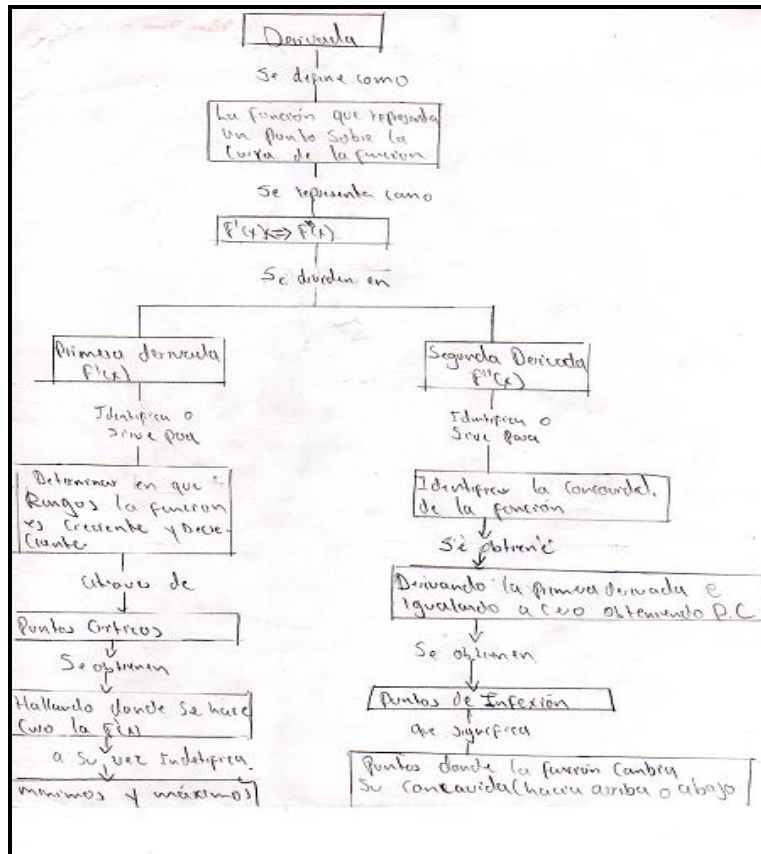 Derivada
Se define como
La función que representa
un punto sobre la
curva de la función
Se representa como
F'(x) <=> F''(x)
Se dividen en
Primera derivada
F'(x)
Identifica o
Sirve para
Determinar en que
Rangos la función
es Creciente y Decre-
ciente
atraves de
Puntos Criticos
Se obtienen
Hallando donde se hace
Cero la F'(x)
a su vez Indetifica
minimos y máximos
Segunda Derivada
F''(x)
Identifica o
Sirve para
Identificar la concavidad.
de la función
Se obtiene
Derivando la primera derivada e
igualando a cero obteniendo P.C
Se obtienen
Puntos de Infexión
que significa
Puntos donde la función Cambia
Su concavida(hacia arriba o abajo